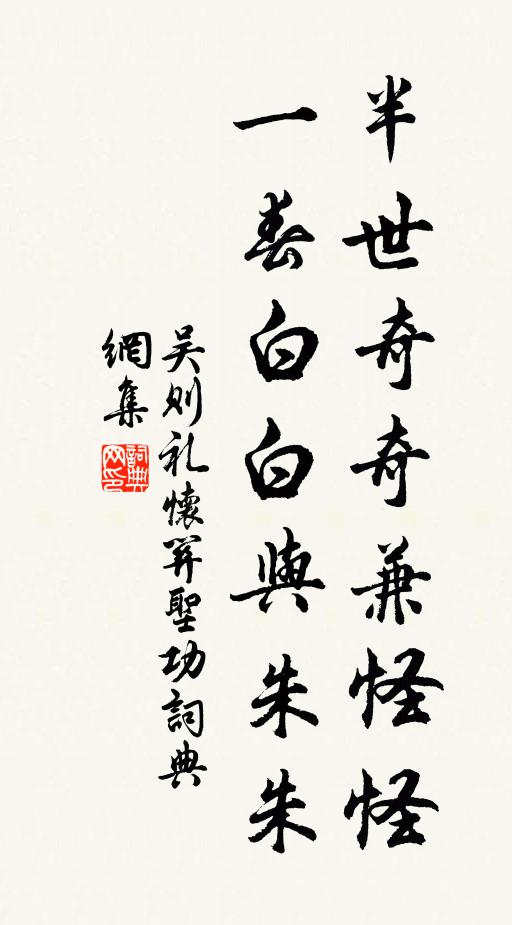 半世奇奇兼怪怪
一春白白與朱朱
吴则礼懷關聖功詞典
網集
詞典
网印